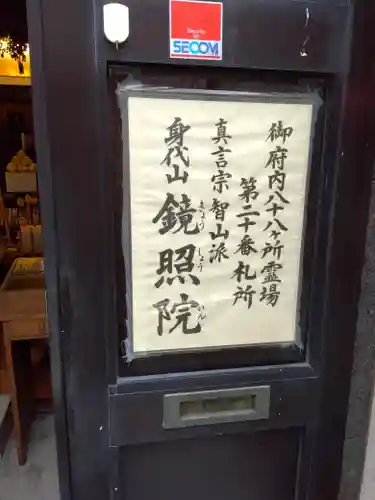 Security by
SECOM
御府内八十八ヶ所霊場
第二十番札所
真言宗智山派
身代山 鏡照院
きょう しょう いん